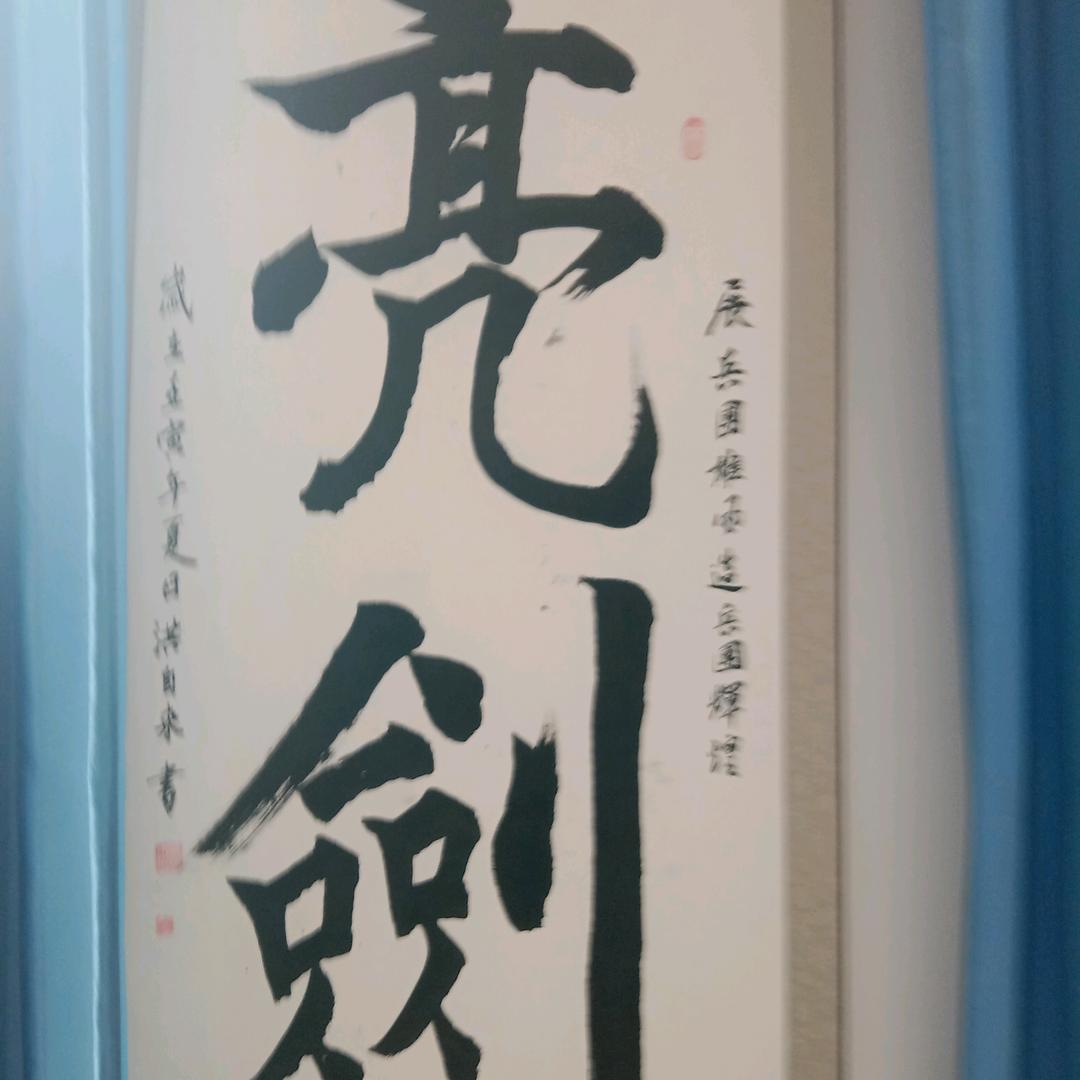 展兵團雄風造兵團輝煌
亮劍
歲在壬寅年夏日洪自来書